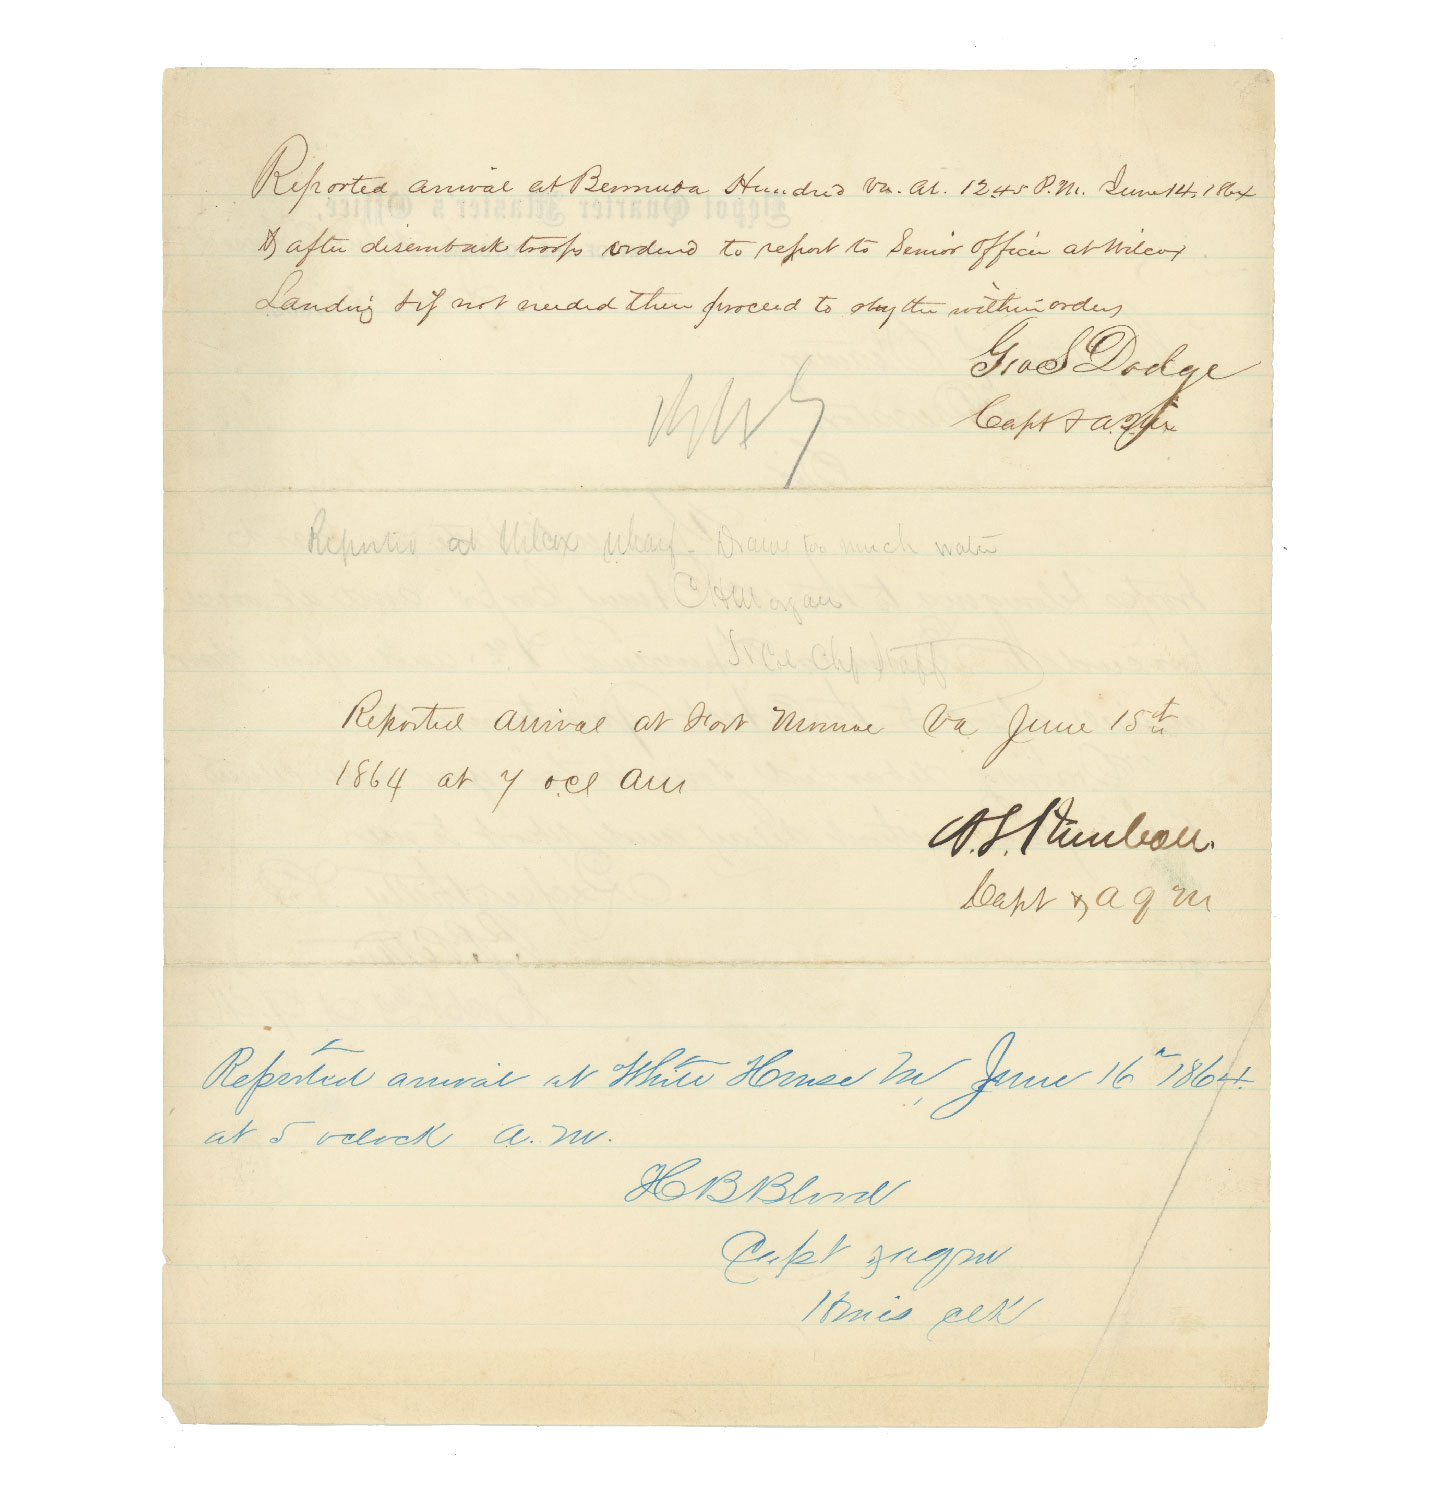 Reported arrival at Bermuda Hundred Va. At. 12.45 P.M. June 14. 1864
& after disembark troops orderd to report to Senior officer at Wilcox
Landing & if not needed then proceed to obey the within orders
Geo S Dodge
Capt & A.Q.M
Reported at Wilcox Wharf - Draws too much water
C H Morgan
Lt Col Chf Staff
Reported arrival at Fort Monroe Va June 15th
1864 at 7 ocl AM
Capt & A Q M
Reported arrival at White House Va, June 16th 1864.
at 5 oclock A.M.
H B Blood
Capt & AQM